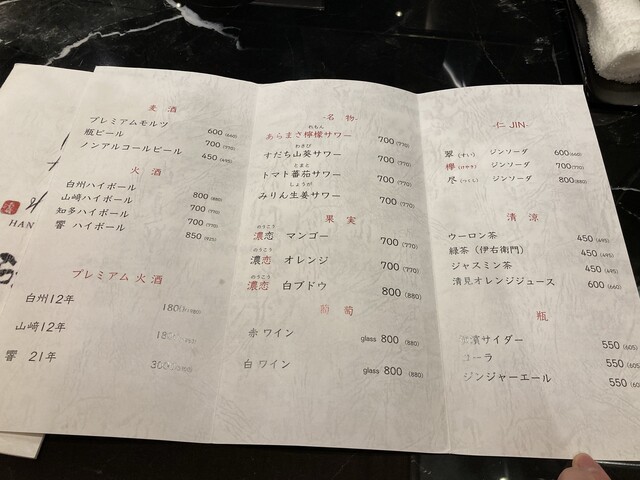 麦 酒
プレミアムモルツ 600 (660)
瓶ビール 700 (770)
ノンアルコールビール 450 (495)
火 酒
白州ハイボール 800 (880)
山﨑ハイボール 700 (770)
知多ハイボール 700 (770)
響 ハイボール 850 (935)
プレミアム火酒
白州12年 1800
山﨑12年
響 21年
HAN
-名 物-
れもん
あらまさ檸檬サワー 700 (770)
わさび
すだち山葵サワー 700 (770)
とまと
トマト蕃茄サワー 700 (770)
しょうが
みりん生姜サワー 700 (770)
果 実
のうこう
濃恋 マンゴー 700 (770)
のうこう
濃恋 オレンジ 700 (770)
のうこう
濃恋 白ブドウ 800 (880)
葡 萄
赤ワイン glass 800 (880)
白ワイン glass 800 (880)
-仁 JIN-
翠 (すい) ジンソーダ 600 (660)
欅 (けやき) ジンソーダ 700 (770)
尽 (つくし) ジンソーダ 800 (880)
清 涼
ウーロン茶 450 (495)
緑茶（伊右衛門） 450 (495)
ジャスミン茶 450 (495)
清見オレンジジュース 600 (660)
瓶
サイダー 550 (605)
コーラ 550 (605)
ジンジャーエール 550